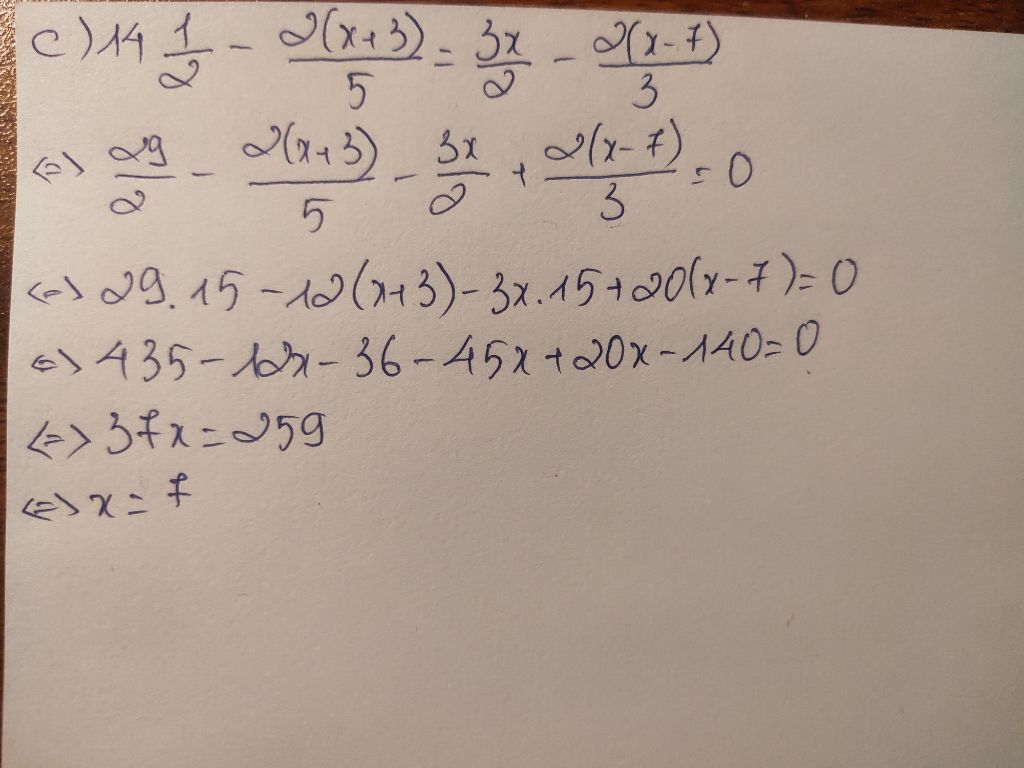 c) 14 1/2 - 2(x+3)/5 = 3x/2 - 2(x-7)/3
<=> 29/2 - 2(x+3)/5 - 3x/2 + 2(x-7)/3 = 0
<=> 29.15 - 12(x+3) - 3x.15 + 20(x-7) = 0
<=> 435 - 12x - 36 - 45x + 20x - 140 = 0
<=> 37x = 259
<=> x = 7